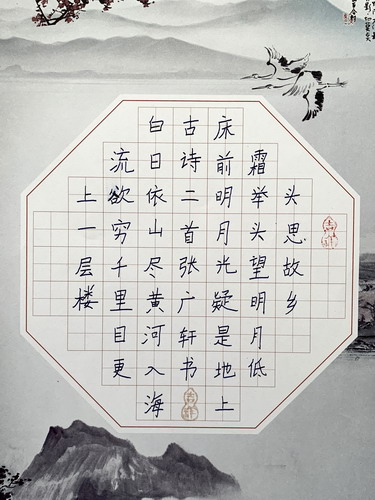 床前明月光疑是地上
霜举头望明月低
头思故乡
古诗二首张广轩书
白日依山尽黄河入海
流欲穷千里目更
上一层楼